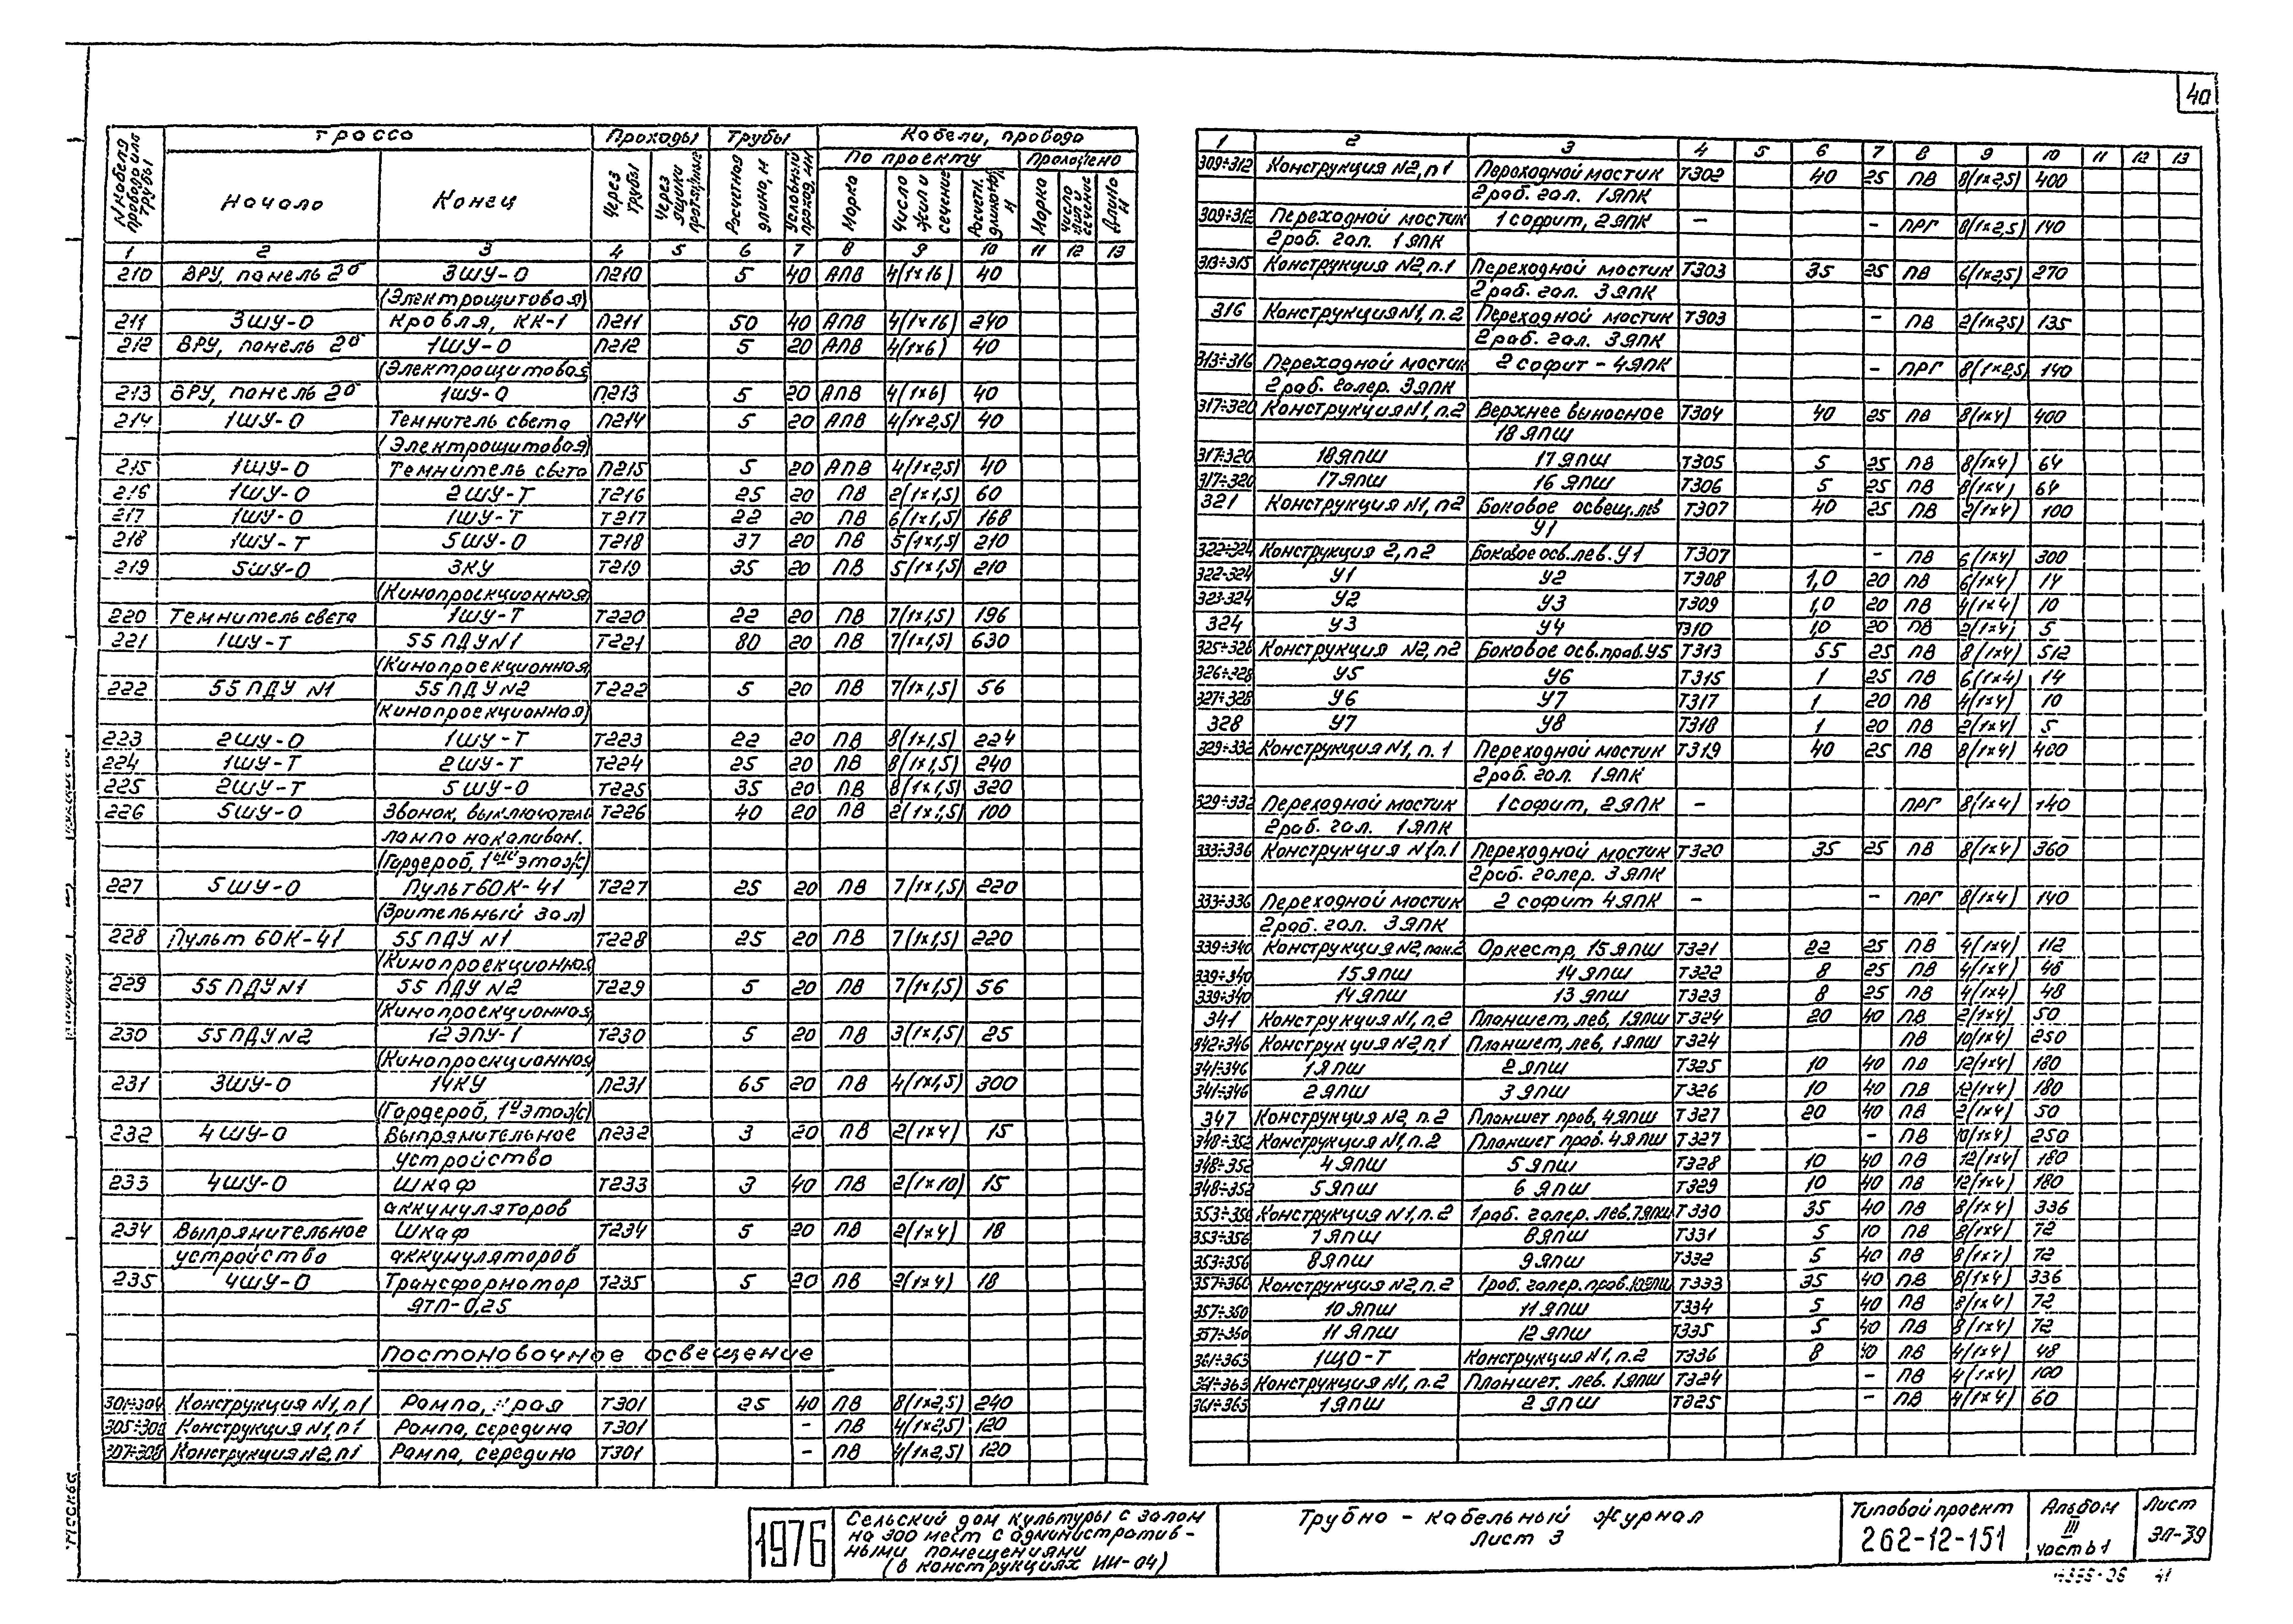 40
N кабеля провода или трубы | Трасса | Проходы | Трубы | Кабели, провода
По проекту | Проложено
Начало | Конец | Через трубы | Через ящики протяжные | Расчетная длина, м | Условный проход, мм | Марка | Число жил и сечение | Расчетн. длина, м | Марка | Число жил и сечение | Длина м
1 2 3 4 5 6 7 8 9 10 11 12 13
210 ВРУ, панель 2а 3ШУ-О П210 5 40 АПВ 4(1×16) 40
(Электрощитовая)
211 3ШУ-О Кровля, КК-1 П211 50 40 АПВ 4(1×16) 240
212 ВРУ, панель 2а 1ШУ-О П212 5 20 АПВ 4(1×6) 40
(Электрощитовая)
213 ВРУ, панель 2а 1ШУ-О П213 5 20 АПВ 4(1×6) 40
214 1ШУ-О Темнитель света П214 5 20 АПВ 4(1×2,5) 40
(Электрощитовая)
215 1ШУ-О Темнитель света П215 5 20 АПВ 4(1×2,5) 40
216 1ШУ-О 2ШУ-Т Т216 25 20 ПВ 2(1×1,5) 60
217 1ШУ-О 1ШУ-Т Т217 22 20 ПВ 6(1×1,5) 168
218 1ШУ-Т 5ШУ-О Т218 37 20 ПВ 5(1×1,5) 210
219 5ШУ-О 3КУ Т219 35 20 ПВ 5(1×1,5) 210
(Кинопроекционная)
220 Темнитель света 1ШУ-Т Т220 22 20 ПВ 7(1×1,5) 196
221 1ШУ-Т 55 ПДУ N1 Т221 80 20 ПВ 7(1×1,5) 630
(Кинопроекционная
222 55 ПДУ N1 55 ПДУ N2 Т222 5 20 ПВ 7(1×1,5) 56
(Кинопроекционная)
223 2ШУ-О 1ШУ-Т Т223 22 20 ПВ 8(1×1,5) 224
224 1ШУ-Т 2ШУ-Т Т224 25 20 ПВ 8(1×1,5) 240
225 2ШУ-Т 5ШУ-О Т225 35 20 ПВ 8(1×1,5) 320
226 5ШУ-О Звонок, выключатель Т226 40 20 ПВ 2(1×1,5) 100
лампа накаливан.
(Гардероб, 1ый этаж)
227 5ШУ-О Пульт 60К-41 Т227 25 20 ПВ 7(1×1,5) 220
(Зрительный зал)
228 Пульт 60К-41 55 ПДУ N1 Т228 25 20 ПВ 7(1×1,5) 220
(Кинопроекционная
229 55 ПДУ N1 55 ПДУ N2 Т229 5 20 ПВ 7(1×1,5) 56
(Кинопроекционная
230 55 ПДУ N2 12 ЭПУ-1 Т230 5 20 ПВ 3(1×1,5) 25
(Кинопроекционная
231 3ШУ-О 14КУ П231 65 20 ПВ 4(1×1,5) 300
(Гардероб, 1й этаж)
232 4ШУ-О Выпрямительное П232 3 20 ПВ 2(1×4) 15
устройство
233 4ШУ-О Шкаф Т233 3 40 ПВ 2(1×10) 15
аккумуляторов
234 Выпрямительное Шкаф Т234 5 20 ПВ 2(1×4) 18
устройство аккумуляторов
235 4ШУ-О Трансформатор Т235 5 20 ПВ 2(1×4) 18
ЯТП-0,25
Постановочное освещение
301÷304 Конструкция N1, п1 Рампа, края Т301 25 40 ПВ 8(1×2,5) 240
305÷306 Конструкция N1, п1 Рампа, середина Т301 - ПВ 4(1×2,5) 120
307÷308 Конструкция N2, п1 Рампа, середина Т301 - ПВ 4(1×2,5) 120
1 2 3 4 5 6 7 8 9 10 11 12 13
309÷312 Конструкция N2, п1 Переходной мостик Т302 40 25 ПВ 8(1×2,5) 400
2 раб. гал. 1ЯПК
309÷312 Переходной мостик 1 софит, 2ЯПК – - ПРГ 8(1×2,5) 140
2 раб. гал. 1ЯПК
313÷315 Конструкция N2, п.1 Переходной мостик Т303 35 25 ПВ 6(1×2,5) 270
2 раб. гал. 3ЯПК
316 Конструкция N1, п.2 Переходной мостик Т303 - ПВ 2(1×2,5) 135
2 раб. гал. 3ЯПК
313÷316 Переходной мостик 2 софит - 4ЯПК - ПРГ 8(1×2,5) 140
2 раб. галер. 3ЯПК
317÷320 Конструкция N1, п.2 Верхнее выносное Т304 40 25 ПВ 8(1×4) 400
18 ЯПШ
317÷320 18ЯПШ 17 ЯПШ Т305 5 25 ПВ 8(1×4) 64
317÷320 17ЯПШ 16 ЯПШ Т306 5 25 ПВ 8(1×4) 64
321 Конструкция N1, п2 Боковое освещ. лев Т307 40 25 ПВ 2(1×4) 100
У1
322÷324 Конструкция 2, п2 Боковое осв. лев. У1 Т307 - ПВ 6(1×4) 300
322÷324 У1 У2 Т308 1,0 20 ПВ 6(1×4) 14
323÷324 У2 У3 Т309 1,0 20 ПВ 4(1×4) 10
324 У3 У4 Т310 1,0 20 ПВ 2(1×4) 5
325÷328 Конструкция N2, п2 Боковое осв. прав. У5 Т313 55 25 ПВ 8(1×4) 512
326÷328 У5 У6 Т315 1 25 ПВ 6(1×4) 14
327÷328 У6 У7 Т317 1 20 ПВ 4(1×4) 10
328 У7 У8 Т318 1 20 ПВ 2(1×4) 5
329÷332 Конструкция N1, п.1 Переходной мостик Т319 40 25 ПВ 8(1×4) 400
2 раб. гал. 1ЯПК
329÷332 Переходной мостик 1 софит, 2ЯПК – ПРГ 8(1×4) 140
2 раб. гал. 1ЯПК
333÷336 Конструкция N1 п.1 Переходной мостик Т320 35 25 ПВ 8(1×4) 360
2 раб. галер. 3ЯПК
333÷336 Переходной мостик 2 софит 4ЯПК – - ПРГ 8(1×4) 140
2 раб. гал. 3ЯПК
339÷340 Конструкция N2, пан.2 Оркестр, 15 ЯПШ Т321 22 25 ПВ 4(1×4) 112
339÷340 15 ЯПШ 14 ЯПШ Т322 8 25 ПВ 4(1×4) 46
339÷340 14 ЯПШ 13 ЯПШ Т323 8 25 ПВ 4(1×4) 48
341 Конструкция N1, п.2 Планшет, лев, 1ЯПШ Т324 20 40 ПВ 2(1×4) 50
342÷346 Конструкция N2, п.1 Планшет, лев, 1ЯПШ Т324 ПВ 10(1×4) 250
341÷346 1ЯПШ 2ЯПШ Т325 10 40 ПВ 12(1×4) 180
341÷346 2ЯПШ 3ЯПШ Т326 10 40 ПВ 12(1×4) 180
347 Конструкция N2, п.2 Планшет прав, 4ЯПШ Т327 20 40 ПВ 2(1×4) 50
348÷352 Конструкция N1, п.2 Планшет прав. 4ЯПШ Т327 - ПВ 10(1×4) 250
348÷352 4ЯПШ 5ЯПШ Т328 10 40 ПВ 12(1×4) 180
348÷352 5ЯПШ 6 ЯПШ Т329 10 40 ПВ 12(1×4) 180
353÷356 Конструкция N1, п.2 1 раб. галер. лев, 7ЯПШ Т330 35 40 ПВ 8(1×4) 336
353÷356 7ЯПШ 8ЯПШ Т331 5 10 ПВ 8(1×4) 72
353÷356 8ЯПШ 9ЯПШ Т332 5 40 ПВ 8(1×4) 72
357÷360 Конструкция N2, п.2 1 раб. галер. прав. 10ЯПШ Т333 35 40 ПВ 8(1×4) 336
357÷360 10 ЯПШ 11 ЯПШ Т334 5 40 ПВ 8(1×4) 72
357÷360 11 ЯПШ 12 ЯПШ Т335 5 40 ПВ 8(1×4) 72
361÷363 1ЩО-Т Конструкция N1, п.2 Т336 8 40 ПВ 4(1×4) 48
361÷363 Конструкция N1, п.2 Планшет. лев. 1ЯПШ Т324 - ПВ 4(1×4) 100
361÷363 1ЯПШ 2ЯПШ Т325 - ПВ 4(1×4) 60
1976
Сельский дом культуры с залом
на 300 мест с административ-
ными помещениями
(в конструкциях ИИ-04)
Трубно-кабельный журнал
Лист 3
Типовой проект
262-12-151
Альбом
III
часть 1
Лист
ЭЛ-39
41